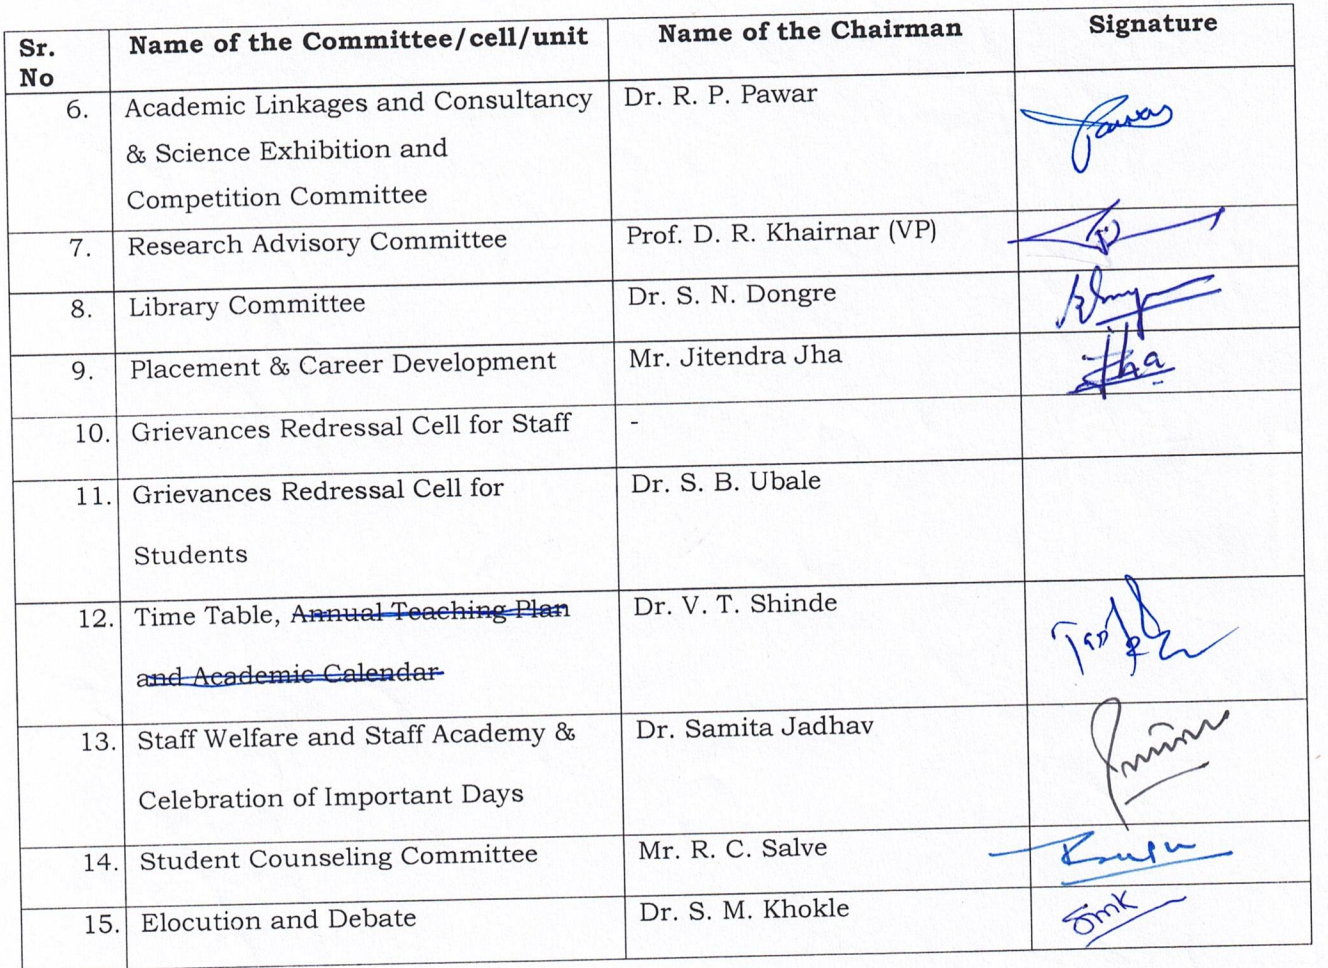 Sr. No Name of the Committee/cell/unit Name of the Chairman Signature
6. Academic Linkages and Consultancy Dr. R. P. Pawar
& Science Exhibition and
Competition Committee
7. Research Advisory Committee Prof. D. R. Khairnar (VP)
8. Library Committee Dr. S. N. Dongre
9. Placement & Career Development Mr. Jitendra Jha Jha
10. Grievances Redressal Cell for Staff -
11. Grievances Redressal Cell for Dr. S. B. Ubale
Students
12. Time Table, Annual Teaching Plan Dr. V. T. Shinde
and Academic Calendar
13. Staff Welfare and Staff Academy & Dr. Samita Jadhav
Celebration of Important Days
14. Student Counseling Committee Mr. R. C. Salve
15. Elocution and Debate Dr. S. M. Khokle SMK